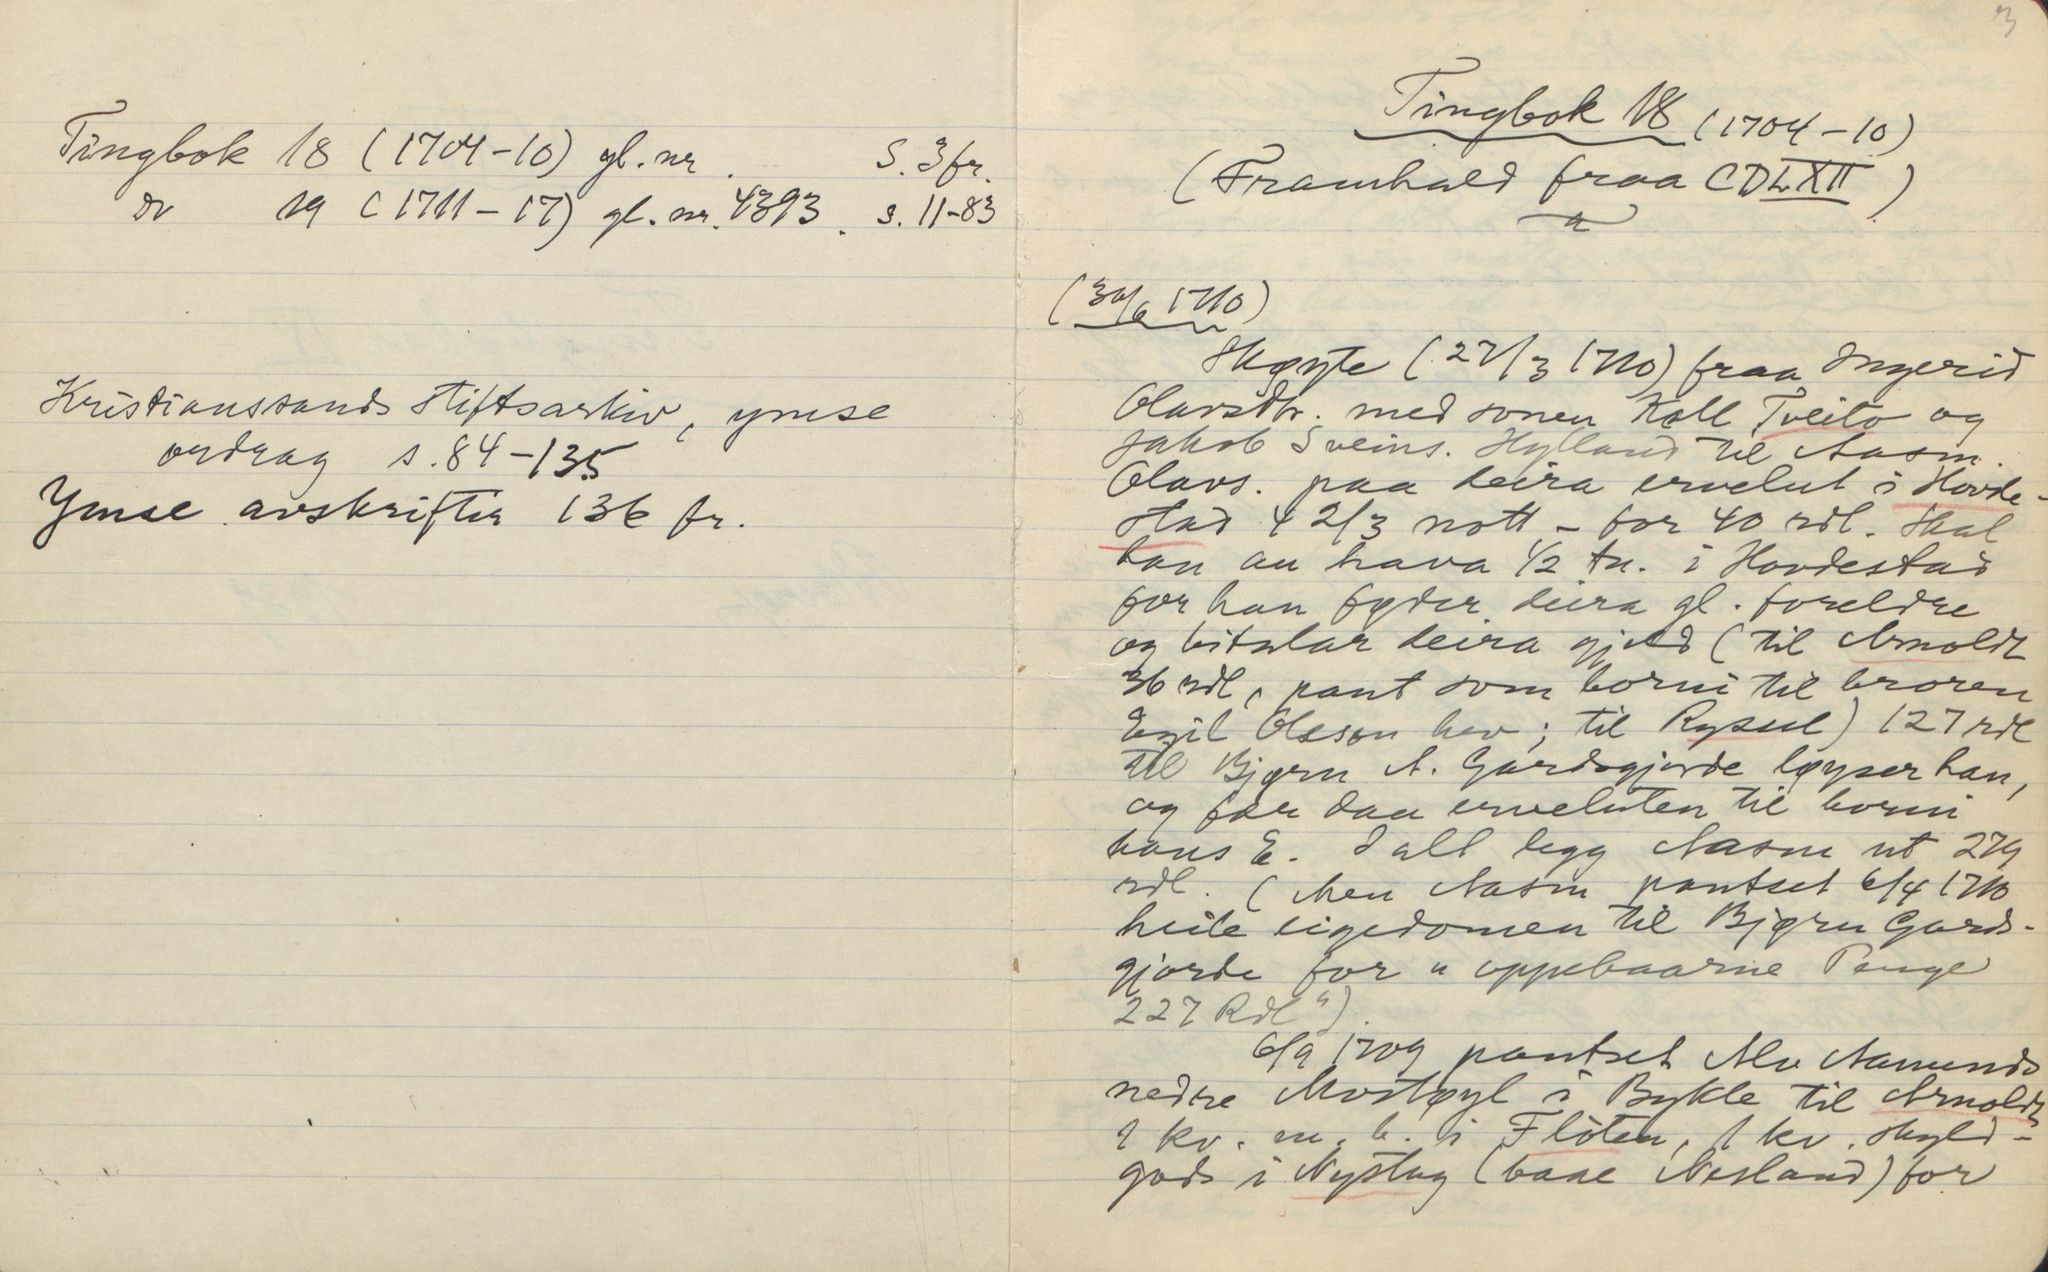 Tingbok 18 (1704-10) gl. nr. S. 3 fr.
do 19 (1711-17) gl. nr. 4393. s. 11-83
Kristianssands stiftsarkiv, ymse
ordrag s. 84-135
Ymse avskrifter 136 fr.
3
Tingbok 18 (1704-10)
(Framhald fraa CDLXII)
(30/6 1710)
Skøyte (27/3 1710) fraa Ingerid
Olavsdtr. med sonen Koll Tveito og
Jakob Sveins. Hylland til Aasm.
Olavs. paa deira ervelut i Hovde-
stad 4 2/3 nott - for 40 rdl. Skal
han au hava 1/2 tn. i Hovdestad
for han føder deira gl. foreldre
og bitalar deira gjeld (til Arnoldt
36 rdl, pant som borni til broren
Egil Olsson hev; til Rysul) 127 rdl
til Bjørn A. Gardsgjorde løyser han,
og fær daa erveluten til borni
hans E. I alt legg Aasm ut 279
rdl. (Men Aasm pantset 6/4 1710
heile eigedomen til Bjørn Gards-
gjorde for "oppebaarne Penge
227 Rdl").
6/9 1709 pantset Alv Aamunds
nedre Mostøyl i Bykle til Arnoldt
1 kv. m. b. i Flòten, 1 kv. skyld-
gods i Nystog (baae Nesland) for